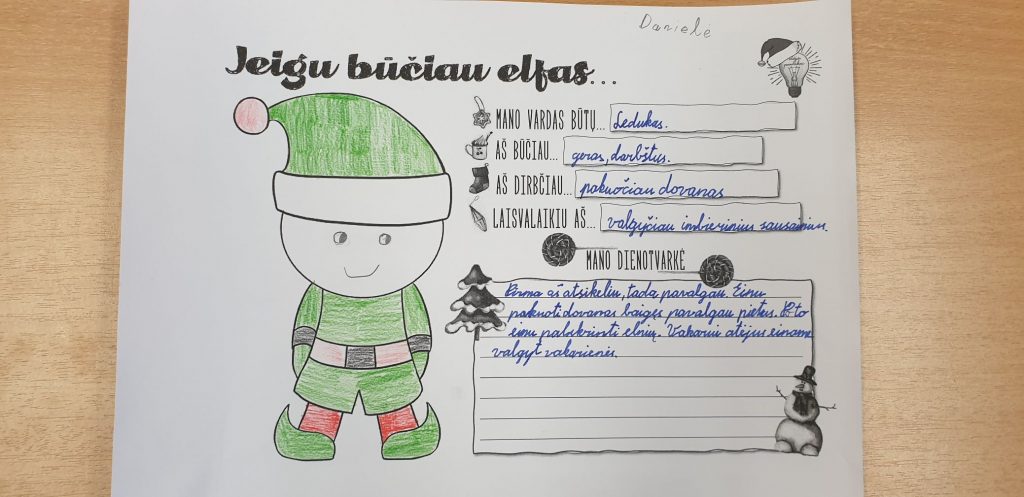 Danielė
Jeigu būčiau elfas...
MANO VARDAS BŪTŲ... Ledukas.
AŠ BŪČIAU... geras, darbštus.
AŠ DIRBČIAU... pakuočiau dovanas
LAISVALAIKIU AŠ... valgyčiau imbierinius sausainius.
MANO DIENOTVARKĖ
Pirma aš atsikeliu, tada pavalgau. Einu
pakuoti dovanas baigęs pavalgau pietus. Po to
einu pabskrinsti elnių. Vakarui atėjus einame
valgyt vakarienės.